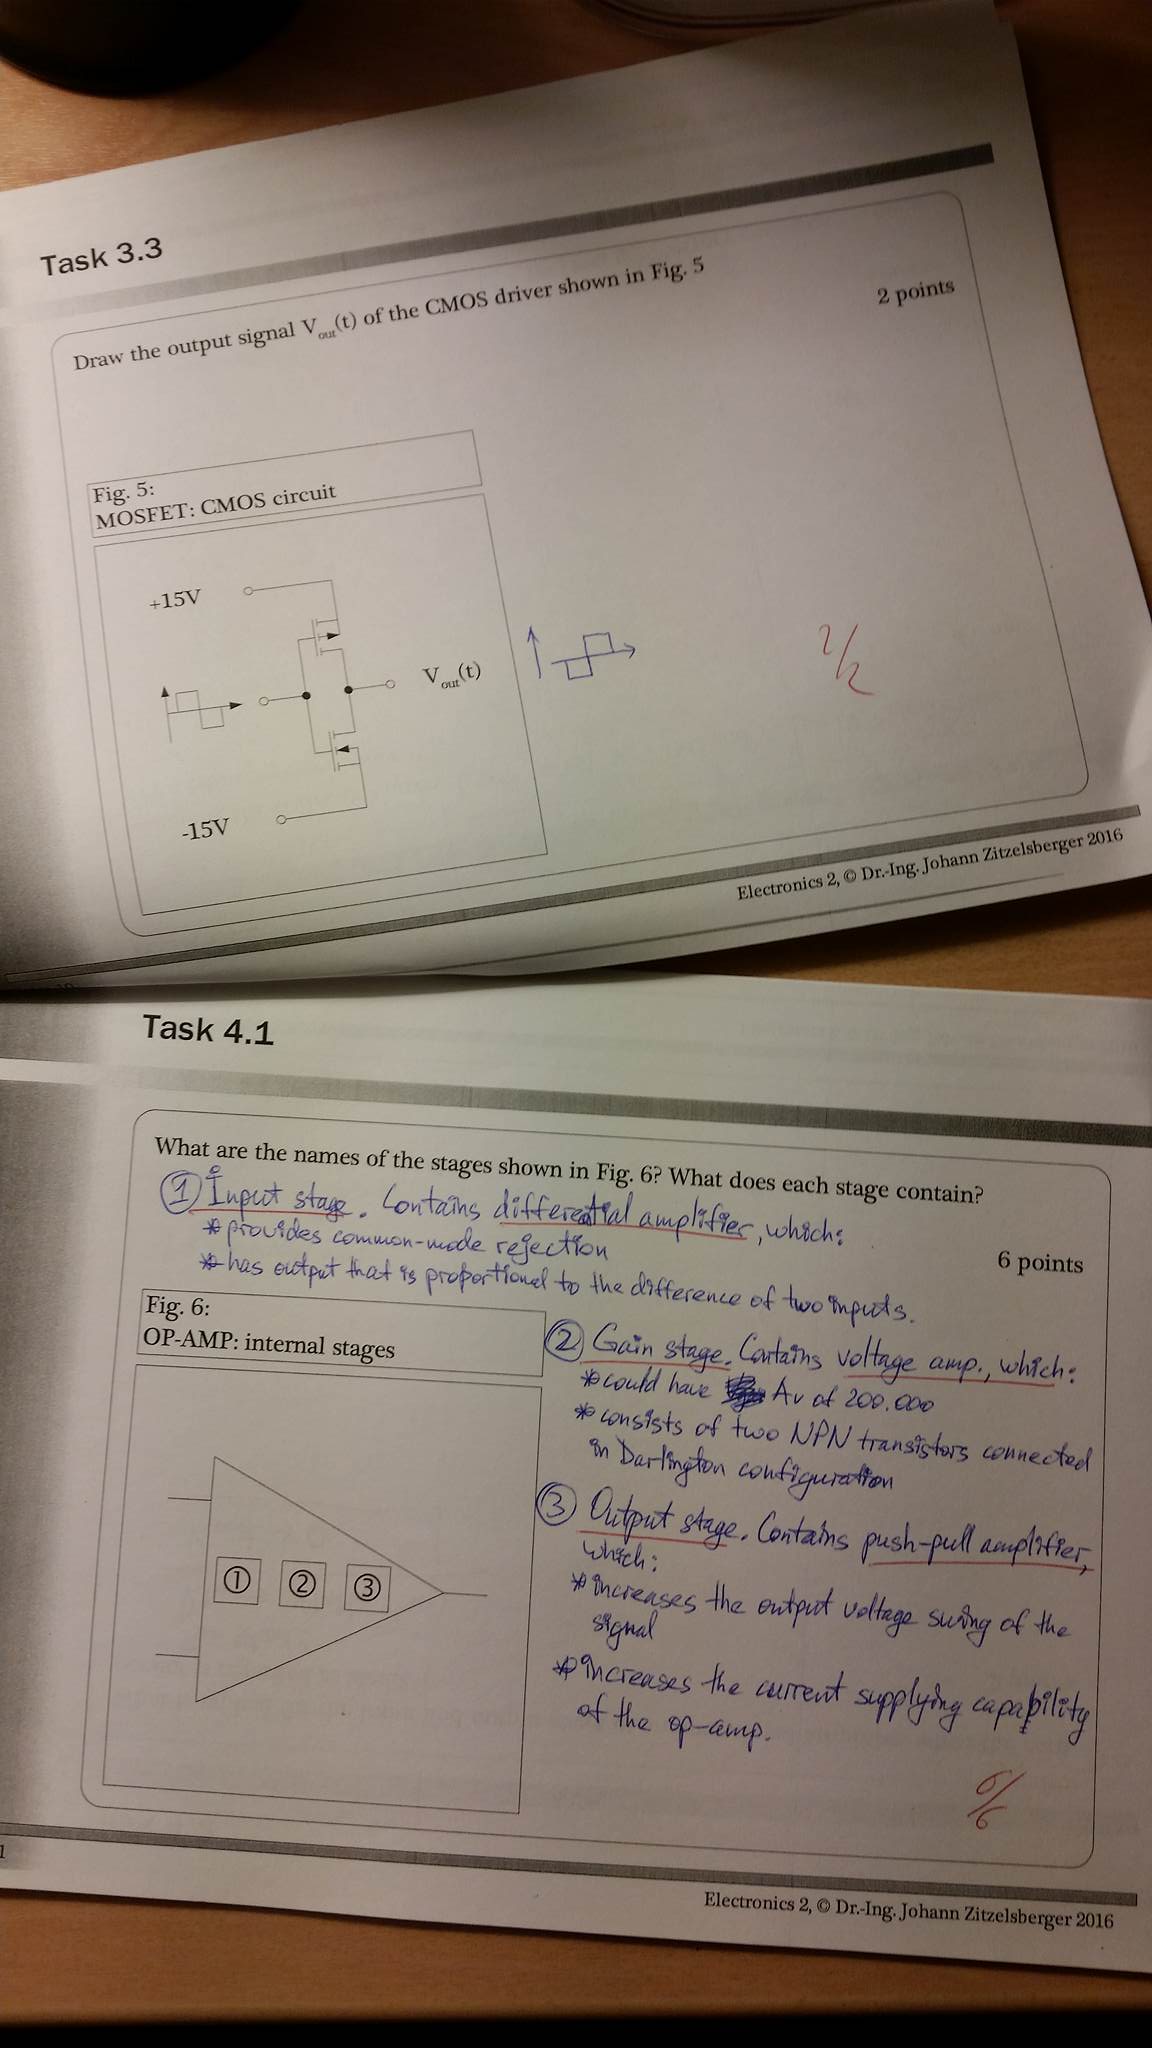 Task 3.3
Draw the output signal Vout(t) of the CMOS driver shown in Fig. 5
2 points
Fig. 5:
MOSFET: CMOS circuit
+15V
Vout(t)
-15V
2/2
Electronics 2, © Dr.-Ing. Johann Zitzelsberger 2016
Task 4.1
What are the names of the stages shown in Fig. 6? What does each stage contain?
① Input stage. Contains differential amplifier, which:
* provides common-mode rejection
* has output that is proportional to the difference of two inputs.
6 points
Fig. 6:
OP-AMP: internal stages
② Gain stage. Contains voltage amp., which:
* could have Av of 200.000
* consists of two NPN transistors connected
in Darlington configuration
③ Output stage. Contains push-pull amplifier,
which:
* increases the output voltage swing of the
signal
* increases the current supplying capability
of the op-amp.
① ② ③
6/6
1
Electronics 2, © Dr.-Ing. Johann Zitzelsberger 2016